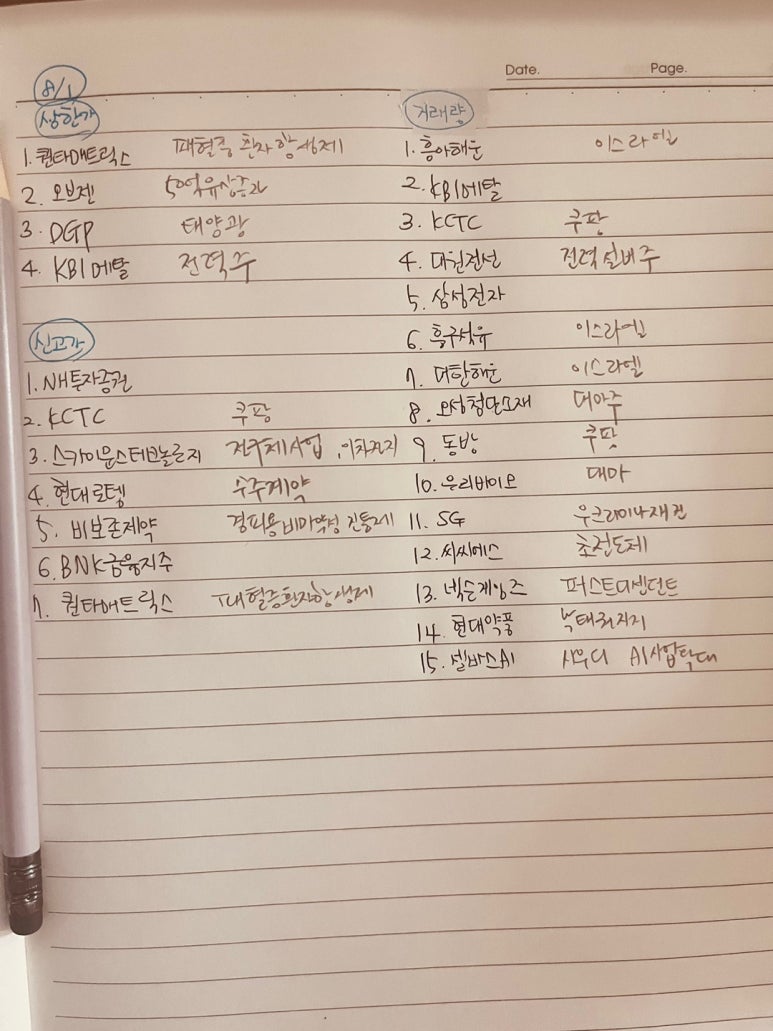 Date. Page.
8/1
상한가
1. 퀀타매트릭스 패혈증 환자 항생제
2. 오브젠 50억유상증자
3. DGP 태양광
4. KBI메탈 전력주
신고가
1. NH투자증권
2. KCTC 쿠팡
3. 스카이문스테크놀로지 전구체사업, 이차전지
4. 현대로템 수주계약
5. 비보존제약 경피용비마약성 진통제
6. BNK금융지주
7. 퀀타매트릭스 패혈증환자항생제
거래량
1. 흥아해운 이스라엘
2. KBI메탈
3. KCTC 쿠팡
4. 대원전선 전력설비주
5. 삼성전자
6. 흥구석유 이스라엘
7. 대한해운 이스라엘
8. 오성첨단소재 대마주
9. 동방 쿠팡
10. 우리바이오 대마
11. SG 우크라이나재건
12. 씨씨에스 초전도체
13. 넥슨게임즈 퍼스트디센던트
14. 현대약품 낙태폐지
15. 셀바스AI 사우디 AI사업확대